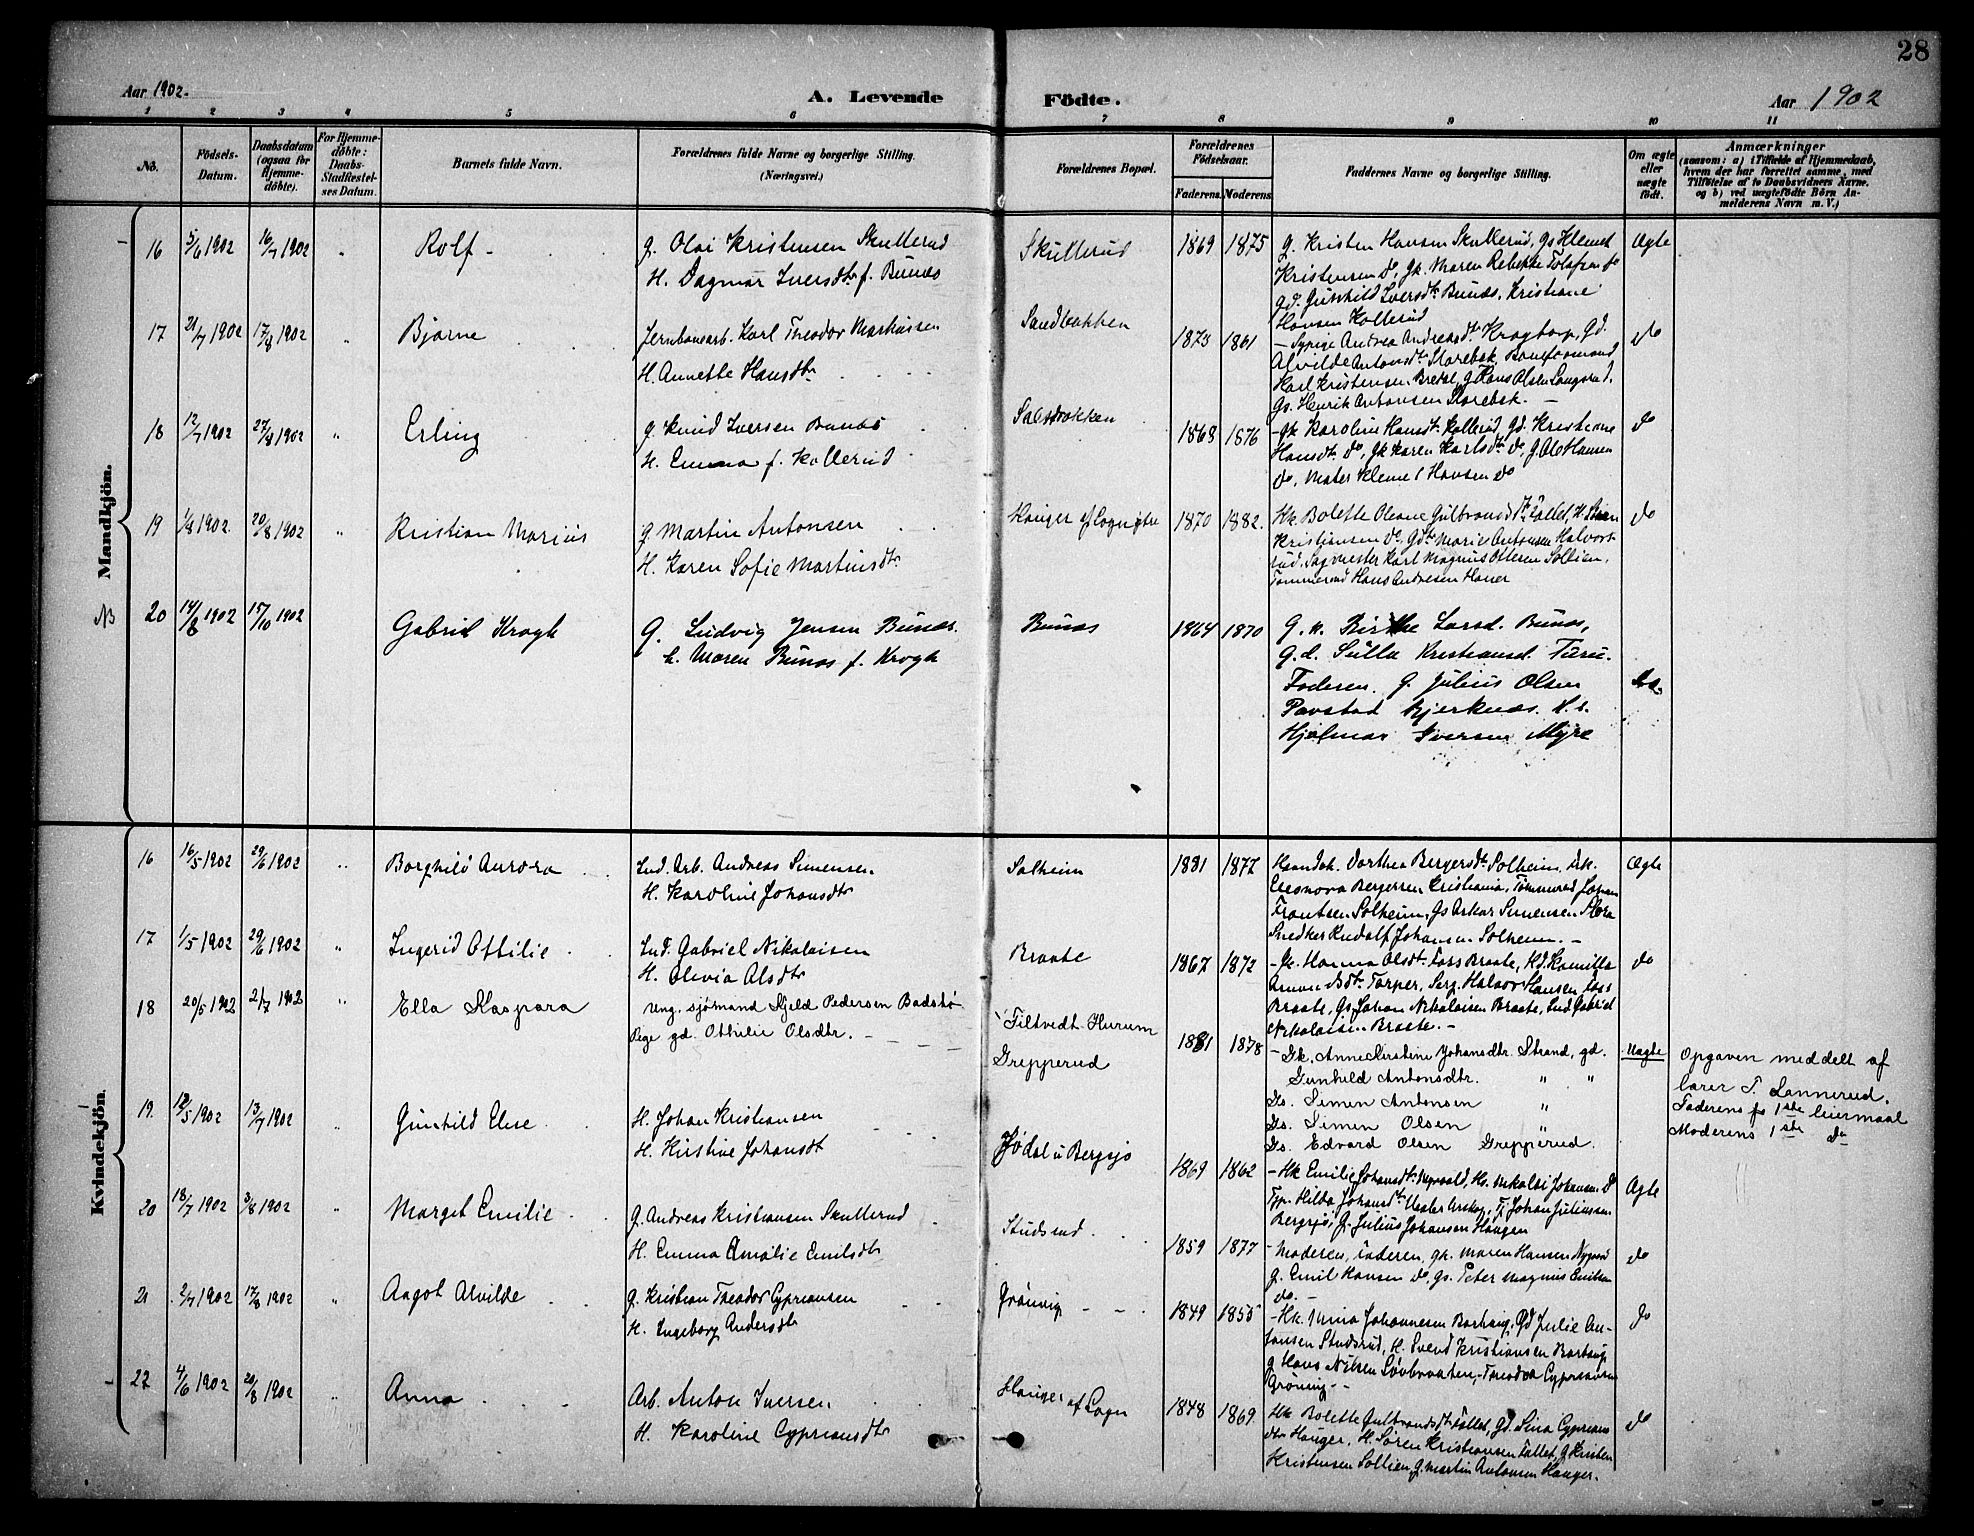 28
Aar 1902.
A. Levende Födte.
Aar 1902
1 2 3 4 5 6 7 8 9 10 11
No.
Födsels-Datum.
Daabsdatum (ogsaa for Hjemme-döbte).
For Hjemme-döbte: Daabs-Stadfæstel-ses Datum.
Barnets fulde Navn.
Forældrenes fulde Navne og borgerlige Stilling.
(Næringsvei.)
Forældrenes Bopæl.
Forældrenes Födselsaar.
Faderens. Moderens.
Faddernes Navne og borgerlige Stilling.
Om ægte eller uægte födt.
Anmærkninger
(saasom: a) i Tilfælde af Hjemmedaab,
hvem der har forrettet samme, med
Tilföielse af to Daabsvidners Navne.
og b) ved uægtefödte Börn An-
melderens Navn m. V.)
Mandkjön.
16 5/6 1902 16/7 1902 " Rolf
G. Olai Kristensen Skullerud
H. Dagmar Iversdtr f. Bunæs
Skullerud 1869 1875
G. Kristen Hansen Skullerud, Gs Klemet
Kristensen do, Gk. Maren Rebekke Tolofsen do
Gd. Gunhild Iversdtr Bunæs, Kristiane
Hansen Kollerud
Ægte
17 21/7 1902 17/8 1902 " Bjarne
Jernbanearb. Karl Theodor Markussen
H. Annette Hansdtr
Sandbakken 1873 1861
Sypige Andrea Andreasdtr Krogtorp, Gd.
Alvilde Antonsdtr Storebæk, Baneformand
Karl Kristensen Bredal, G Hans Olsen
Gs. Henrik Antonsen Storebæk.
do
18 12/7 1902 27/8 1902 " Erling
G. Knud Iversen Bunæs
H. Emma f. Kollerud
1868 1876
Gk Karoline Hansdtr Kollerud, Gd. Kristiane
Hansdtr do, Gk Karen Karlsdtr do, G. Ole Hansen
do, Mater Klemet Hansen do
do
19 1/8 1902 20/8 1902 " Kristian Marius
G. Martin Antonsen
H. Karen Sofie Martinsdtr
Hauger af Sogn 1870 1882
Hk. Bolette Oleane Gulbrandsdtr Tallet, H. Sören
Kristiansen do, Gdtr Marie Antonsen Halvors
rud, Sagmester Karl Magnus Ottesen Sollien,
Tømmermd Hans Andresen Hauer
do
NB 20 14/8 1902 15/10 1902 Gabriel Krogh
G. Ludvig Jensen Bunæs.
h. Maren Bunæs f. Krogh
Bunæs 1864 1870
G. k. Birthe Larsd. Bunæs,
G. d. Sulla Kristiansd. Turu.
Faderen. G. Julius Olsen
Pavestad Bjerknæs. H. s.
Hjalmar Iversen Myre
do.
Kvindekjön.
16 16/5 1902 29/6 1902 " Borghild Aurora
Ind. Arb. Andreas Simensen
H. Karoline Johansdtr
Solheim 1881 1877
Dorthea Bergersdtr Solheim,
Eleonora Bergersen Kristiania, Tømmermd Johan
Frantsen Solheim, Gs Oskar Simensen
Snedker Rudolf Johansen Solheim.
Ægte
17 1/5 1902 29/6 1902 " Ingerid Ottilie
Ind. Gabriel Nikolaisen
H. Olivia Olsdtr
Braate 1867 1872
Gk. Hanna Olsdtr Braate, Kd. Kamilla
Torper, Serg. Halvor Hansen
Braate, Gs Johan Nikolaisen Braate, Ind Gabriel
Nikolaisen Braate.
do
18 20/5 1902 2/7 1902 " Ella Kaspara
Ung. sjømand Kjeld Pedersen Badstø
Pige gd. Othilie Olsdtr.
Filtvedt. Hurum
Grepperud
1881 1878
Gk. Anne Kirstine Johansdtr. Strand, gd.
Gunhild Antonsdtr. " "
Gs. Simen Antonsen "
Gs. Simen Olsen "
Gs. Edvard Olsen Grepperud.
Uægte
Opgaven meddelt af
lærer T. Lannerud.
Faderens fs 1ste leiermaal
Moderens 1ste do
19. 12/5 1902 13/7 1902 " Gunhild Else
H. Johan Kristiansen
H. Kirstine Johansdtr
Jødal u Bergsjø 1869 1862
Hk Emilie Johansdtr, Hs. Nikolai Johansen do
Tp. Hilda Johansdtr, Tj Johan Juliussen
Bergsjø, G. Julius Johansen Haugen
Ægte
20 18/7 1902 3/8 1902 " Margit Emilie
G. Andreas Kristiansen Skullerud
H. Emma Amalie Emilsdtr
Studsrud 1859 1877
Moderen, faderen, gk. Maren Hansen Nygaard
G. Emil Hansen do, gs. Peter Magnus Emilsen
do.
do
21 2/7 1902 17/8 1902 " Aagot Alvilde
G. Kristian Theodor Cypriansen
H. Ingeborg Andersdtr
Grönvig 1849 1855
Hk. Mina Johannesen, Gd Julie An-
tonsen Studsrud, H. Svend Kristiansen
G Hans Nilsen, Theodor Cypriansen
Grönvig
do
22 4/6 1902 20/8 1902 " Anna
Arb. Anton Iversen
H. Karoline Cypriansdtr
Hauger af Sogn 1848 1869
Hk Bolette Gulbrandsdtr Tallet, Gd. Sina Cyprians
dtr Hauger, H. Sören Kristiansen Tallet, G Kristen
Kristensen Sollien, G. Martin Antonsen Hauger.
do